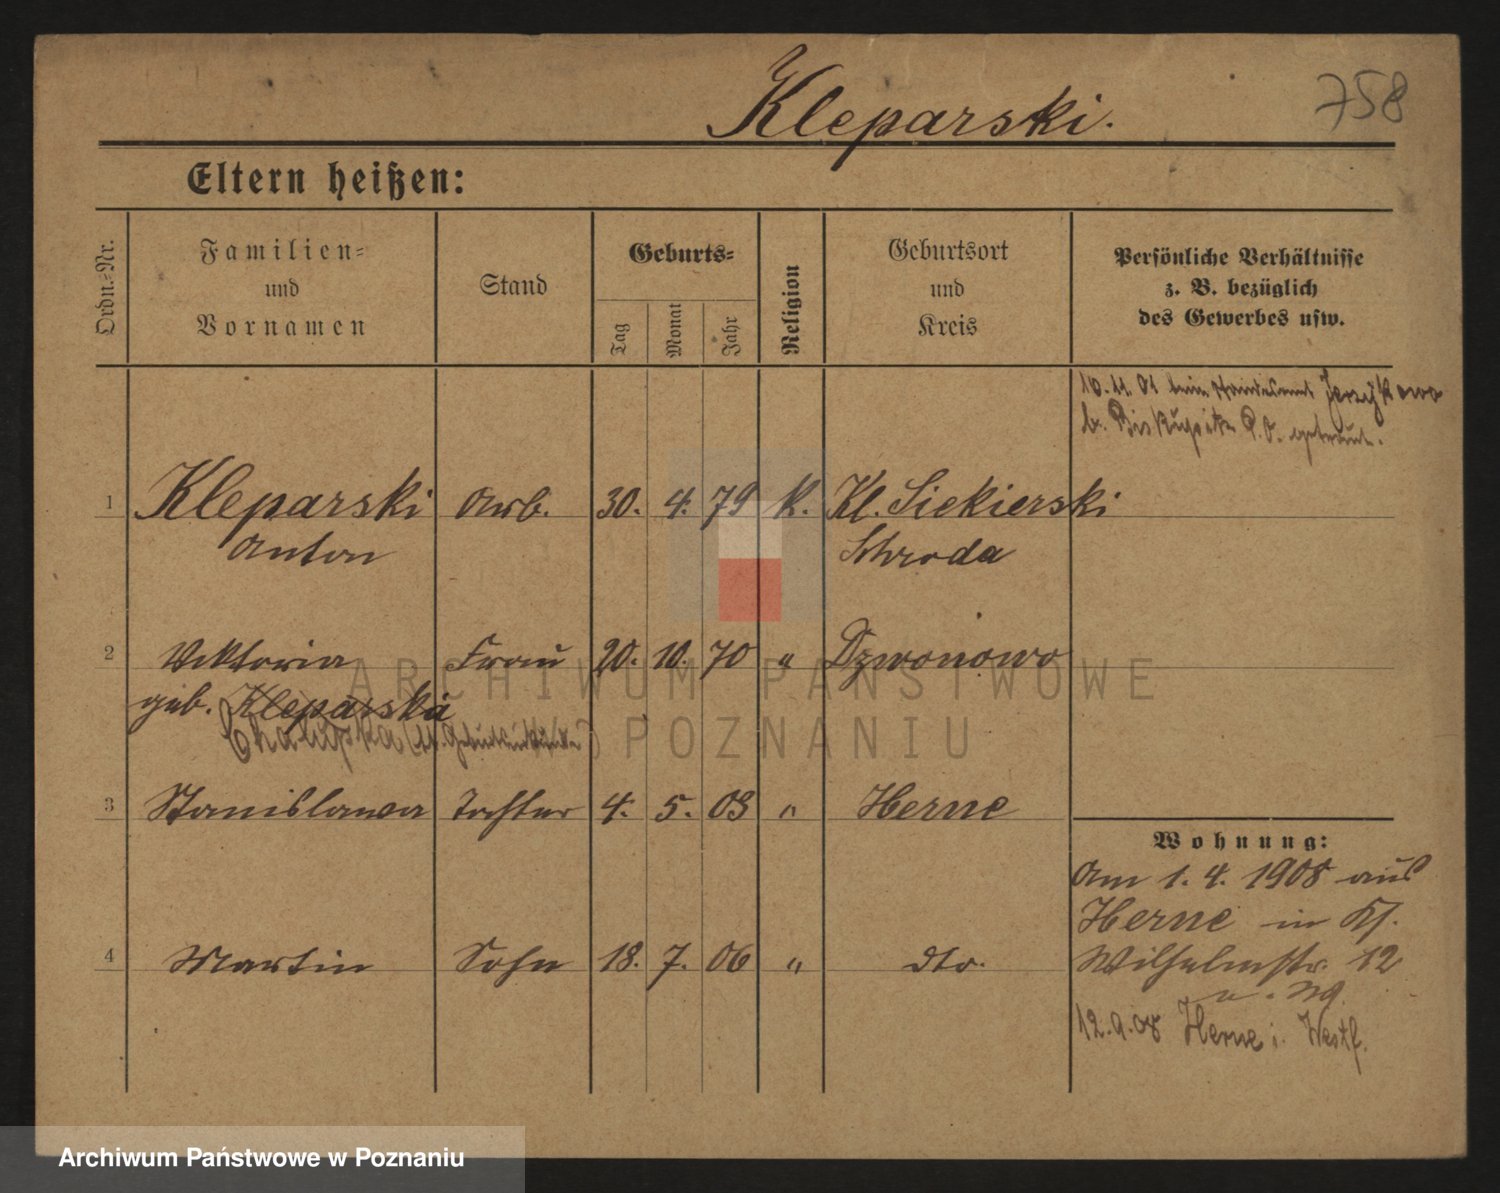 758
Kleparski.
Eltern heißen:
Ordn.-Nr.
Familien-
und
Vornamen
Stand
Geburts-
Tag
Monat
Jahr
Religion
Geburtsort
und
Kreis
Persönliche Verhältnisse
z. B. bezüglich
des Gewerbes usw.
10.11.01 beim Standesamt Jerzykowo
b. Biskupitz P.O. getraut.
1 Kleparski Arb. 30. 4. 79 k. Kl. Siekierski
Anton Schroda
2 Viktoria Frau 20. 10. 70 " Dzwonowo
geb. Kleparska
3 Stanislawa Tochter 4. 5. 03 " Herne
4 Martin Sohn 18. 7. 06 " dto.
Wohnung:
Am 1. 4. 1908 aus
Herne in
Wilhelmstr. 12
12.9.08 Herne i. Westf.
ARCHIWUM PAŃSTWOWE
W POZNANIU
Archiwum Państwowe w Poznaniu